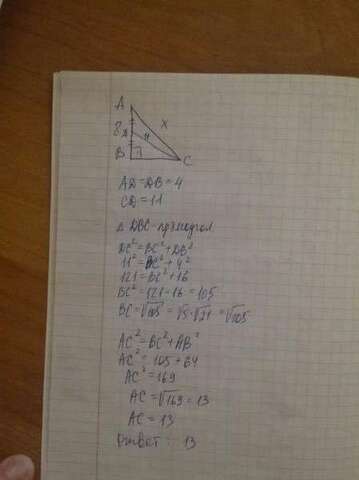 A
8
D
11
x
B
C
AD = DB = 4
CD = 11
△ DBC - прямоугол.
DC² = BC² + DB²
11² = BC² + 4²
121 = BC² + 16
BC² = 121 - 16 = 105
BC = √105 = √5·√21 = √105
AC² = BC² + AB²
AC² = 105 + 64
AC² = 169
AC = √169 = 13
AC = 13
Ответ: 13